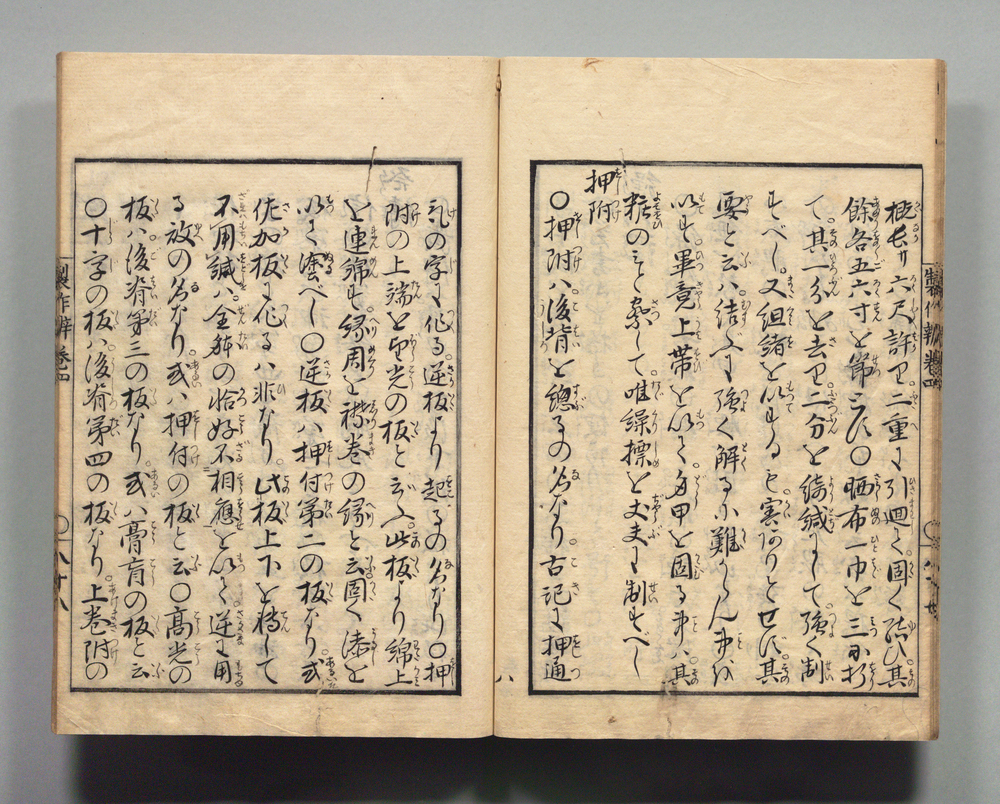 概長サ六尺許リ二重に引廻く固く結ひ其
餘各五六寸を帶るべし〇晒布一巾を三に折
て其一分を去リ二分を縫緘して強く制
すべし又組緒を以する も害ありとせず其
要と云ハ結ふに強く解る小難からん事を
以す畢竟上帶を以て身甲を固る事ハ其
粧のミを索して唯繰摽を丈夫に制すべし
押附
〇押附ハ後背を總るの名なり古記に押通
乳の字に作る逆板より起るの名なり〇押
附の上端を望光の板と云ふ此板より綿上
を連綿す縁周を襟巻の縁と云固く漆を
以て塗べし〇逆板ハ押付第二の板なり或
佐加板に作るハ非なり此板上下を搏て
不用緘ハ全躰の恰好不相應を以て逆に用
る故の名なり或ハ押付の板と云〇高光の
板ハ後脊第三の板なり或ハ膏肓の板と云
〇十字の板ハ後脊第四の板なり上巻附の
製作辨 巻四
製作辨 巻四